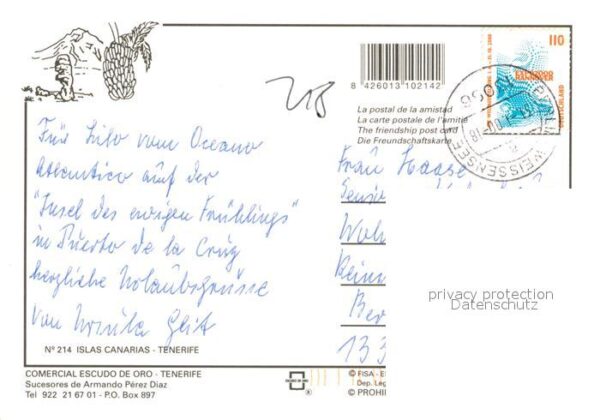 8 426013 102142
110
DEUTSCHLAND
WEISSENSEE
La postal de la amistad
La carte postale de l'amitié
The friendship post card
Die Freundschaftskarte
Für Lilo vom Oceano
Atlantico auf der
"Insel des ewigen Frühlings"
in Puerto de la Cruz
herzliche Urlaubsgrüsse
von Ursula Geit
Frau Haase
Senio
Woh
Rein
Ber
133
privacy protection
Datenschutz
Nº 214 ISLAS CANARIAS - TENERIFE
COMERCIAL ESCUDO DE ORO - TENERIFE
Sucesores de Armando Pérez Diaz
Tel 922 21 67 01 - P.O. Box 897
ESCUDO DE ORO
© FISA - E
Dep. Leg
© PROHI